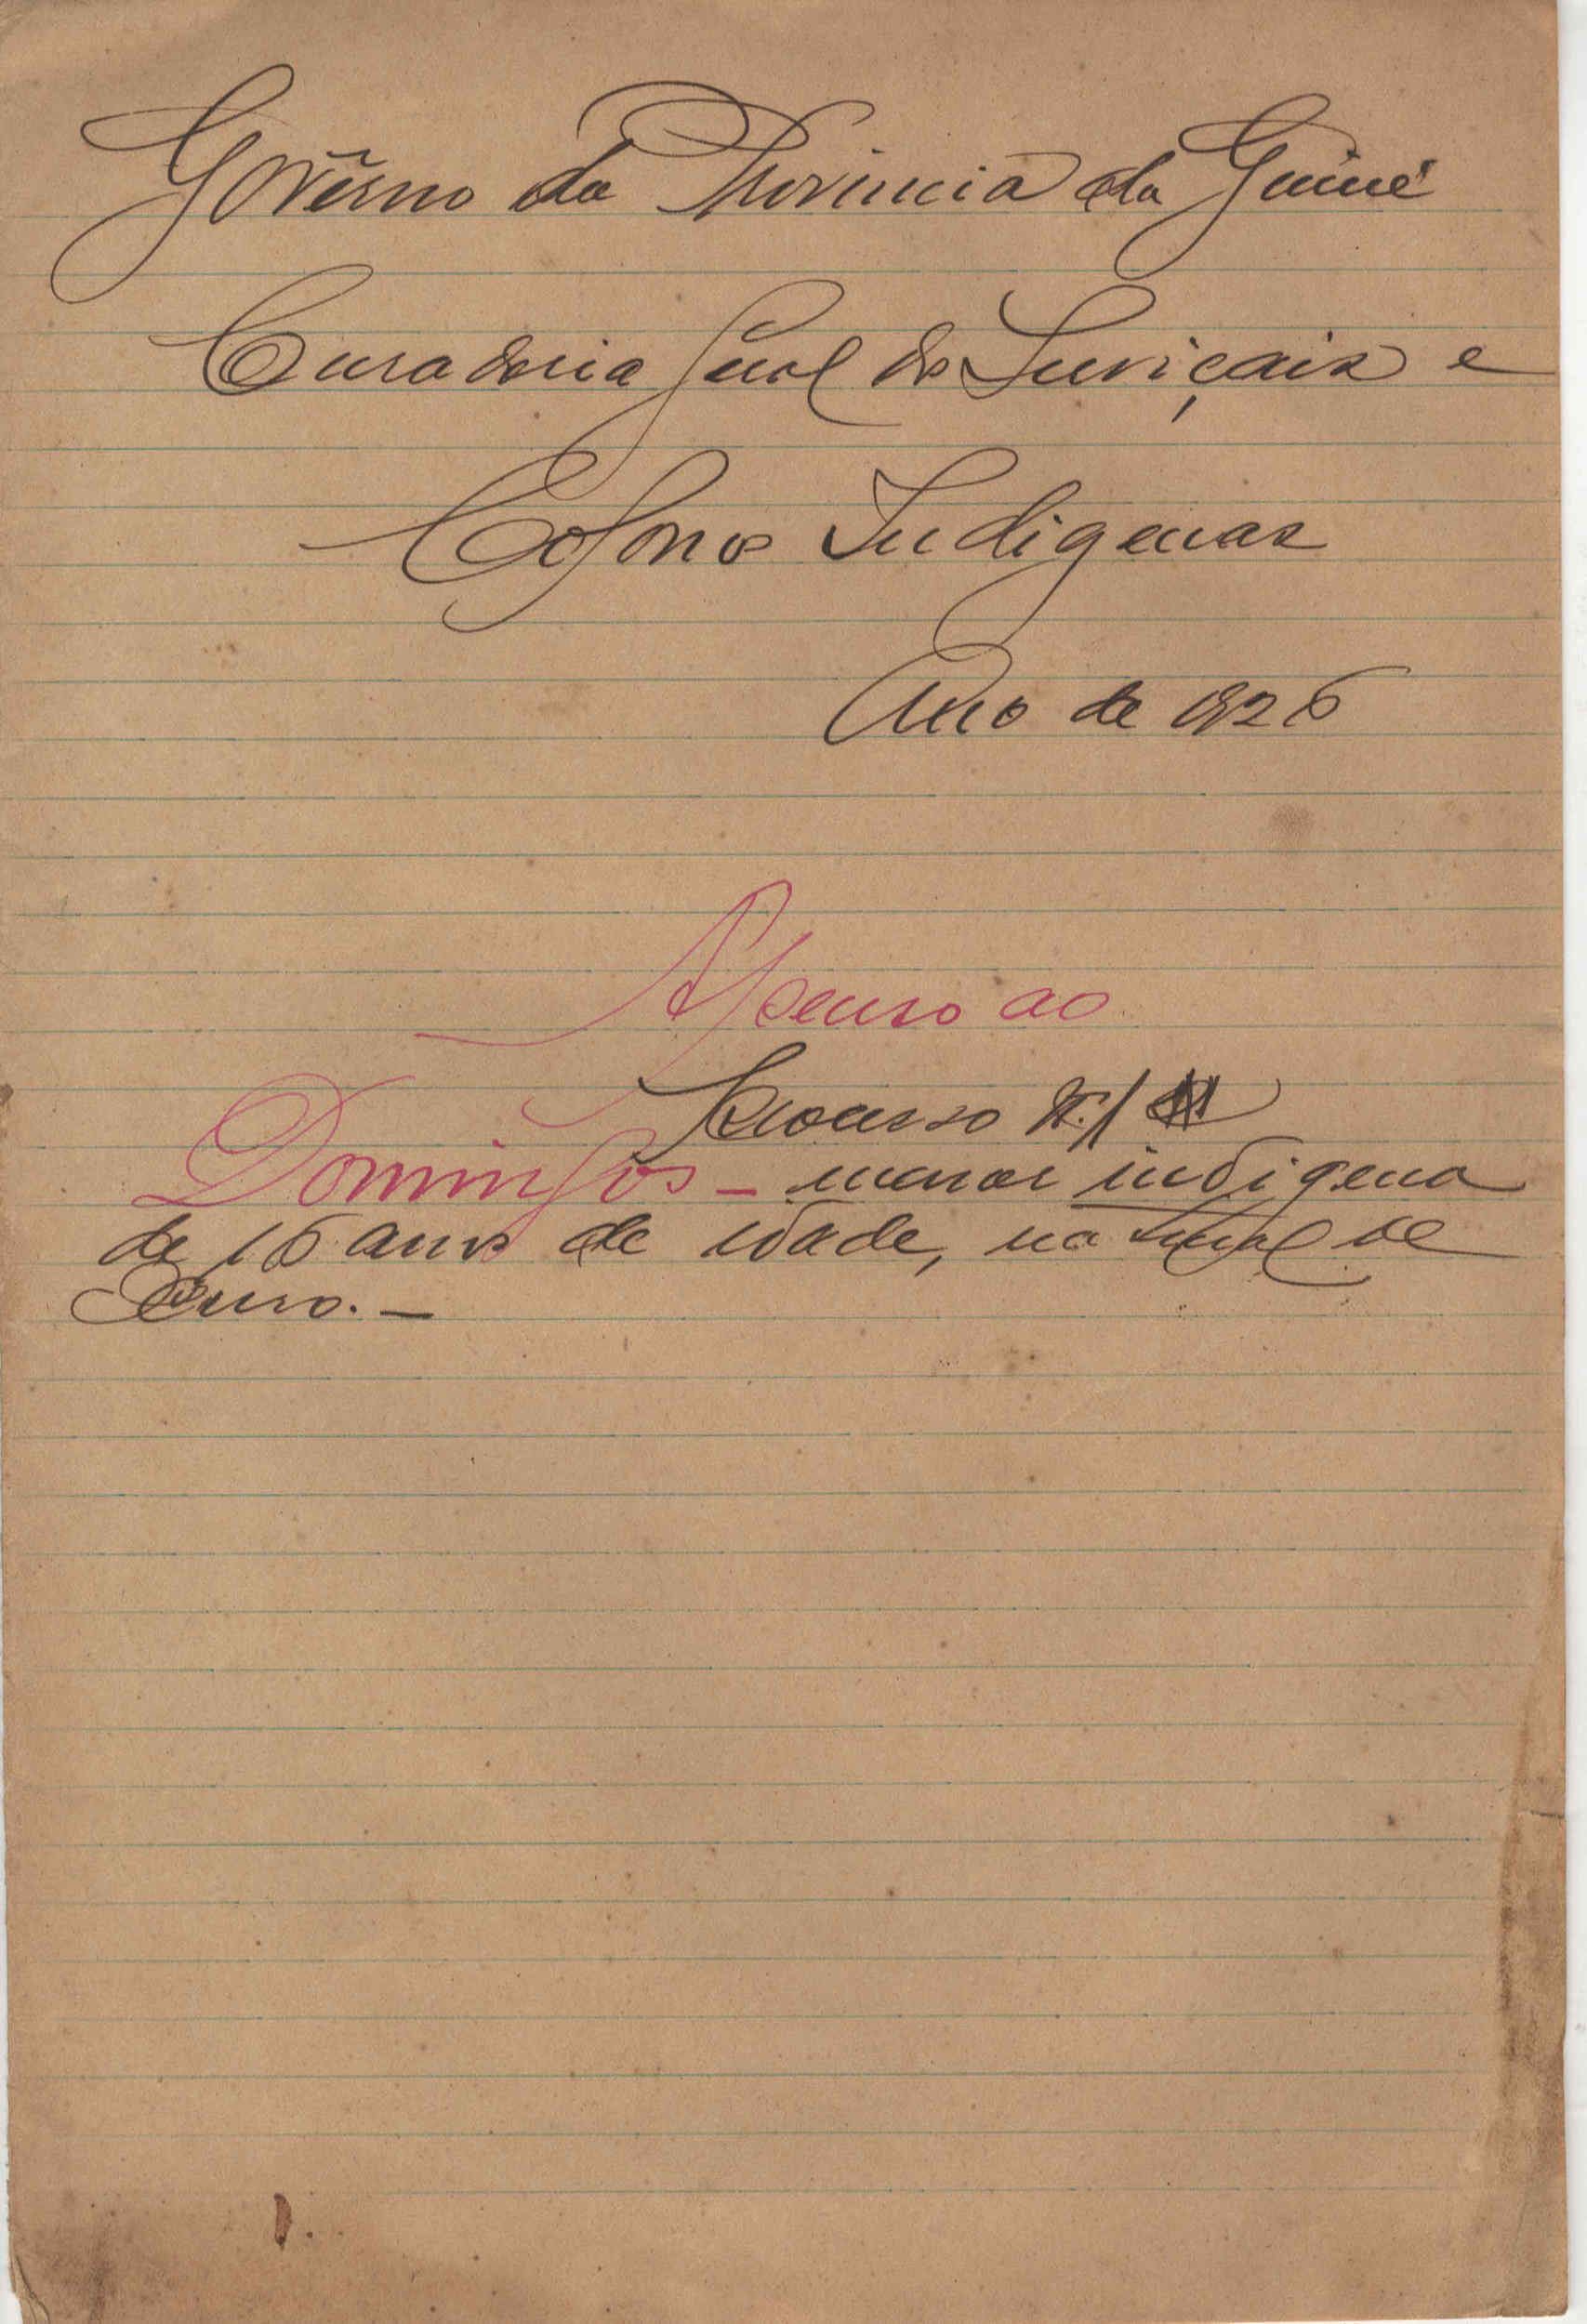 Govêrno da Provincia da Guiné
Curadoria Geral dos Serviçais e
Colonos Indigenas
Ano de 1926
Apenso ao
Processo N.º 1
Domingos - menor indigena
de 16 anos de idade, natural de